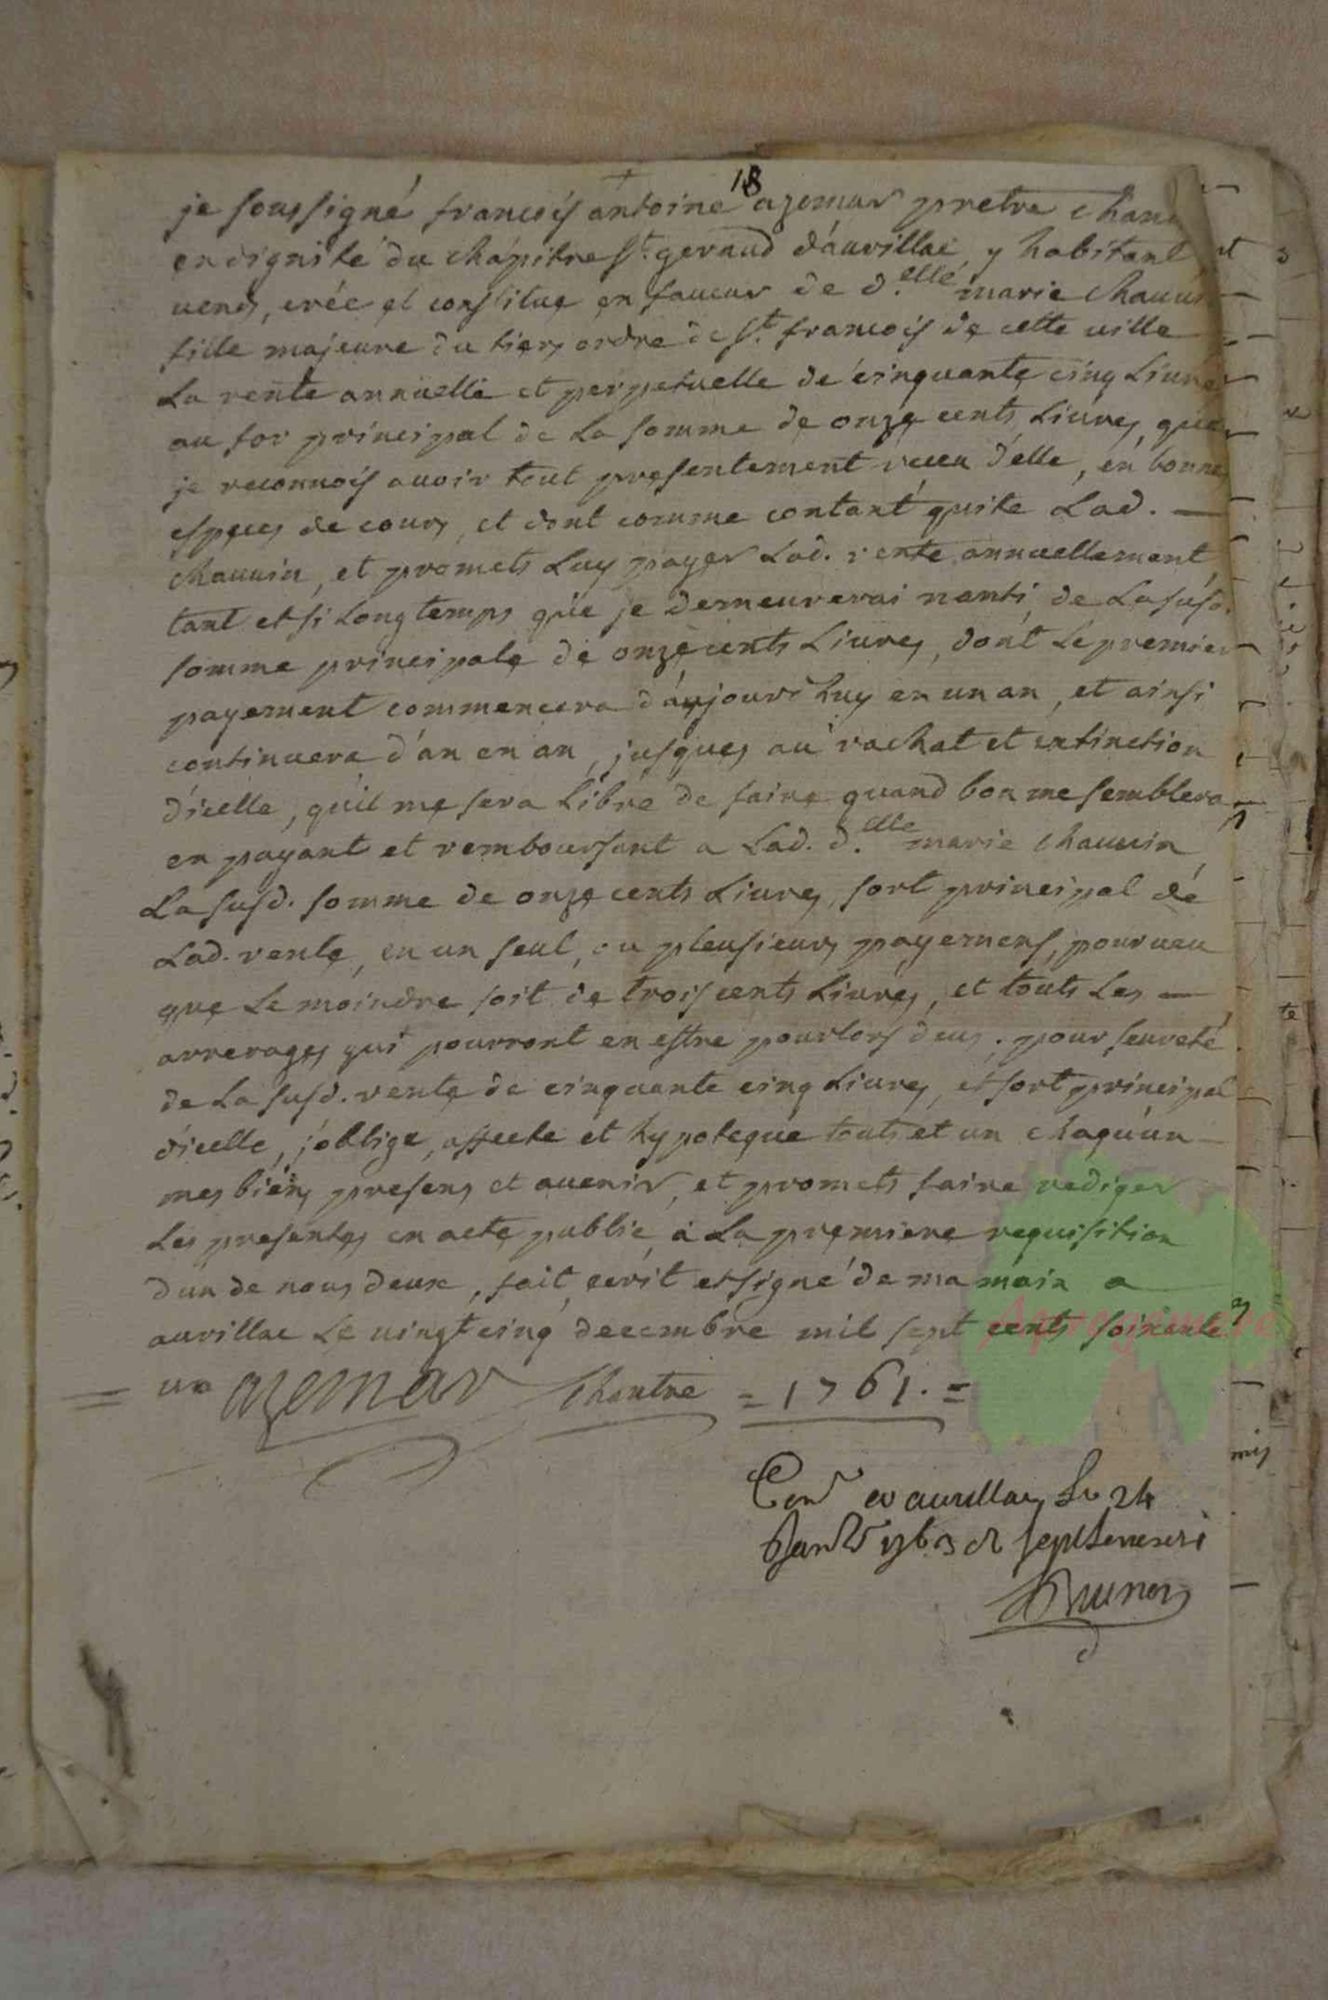 18
je soussigné francois antoine azemar pretre chan
en dignité du chapitre St. geraud d'auvillac, y habitant
vend, crée et constitue en faveur de d.elle marie chauvin
fille majeure du tiers ordre de St. francois de cette ville
La rente annuelle et perpetuelle de cinquante cinq Livres
au for principal de La somme de onze cents Livres, que
je reconnois avoir tout presentement receu d'elle, en bonnes
especes de cours, et dont comme contant quite Lad. —
chauvin, et promets Luy payer Lad. rente annuellement,
tant et si Longtemps que je demeurerai nanti de La susd.
somme principale de onze cents Livres, dont Le premier
payement commencera d'aujourd'huy en un an, et ainsi
continuera d'an en an, jusques au rachat et extinction
d'icelle, qu'il me sera Libre de faire quand bon me semblera
en payant et remboursant a Lad. d.elle marie chauvin
La susd. somme de onze cents Livres, sort principal de
Lad. rente, en un seul, ou pleusieurs payemens, pourveu
que Le moindre soit de trois cents Livres, et touts Les —
arrerages qui pourront en estre pourlors deus. pour seureté
de La susd. rente de cinquante cinq Livres, et sort principal
d'icelle, j'oblige, affecte et hypoteque touts et un chaqu'un —
mes biens presens et avenir, et promets faire rediger
Les presentes en acte public, a La premiere requisition
d'un de nous deux, fait, ecrit et signé de ma main a
auvillac Le vingt cinq decembre mil sept cents soixante
un azemar Chantre = 1761. =
Con.r a auvillac Le 24
Janv.r 1763 R sept livres
Brunet